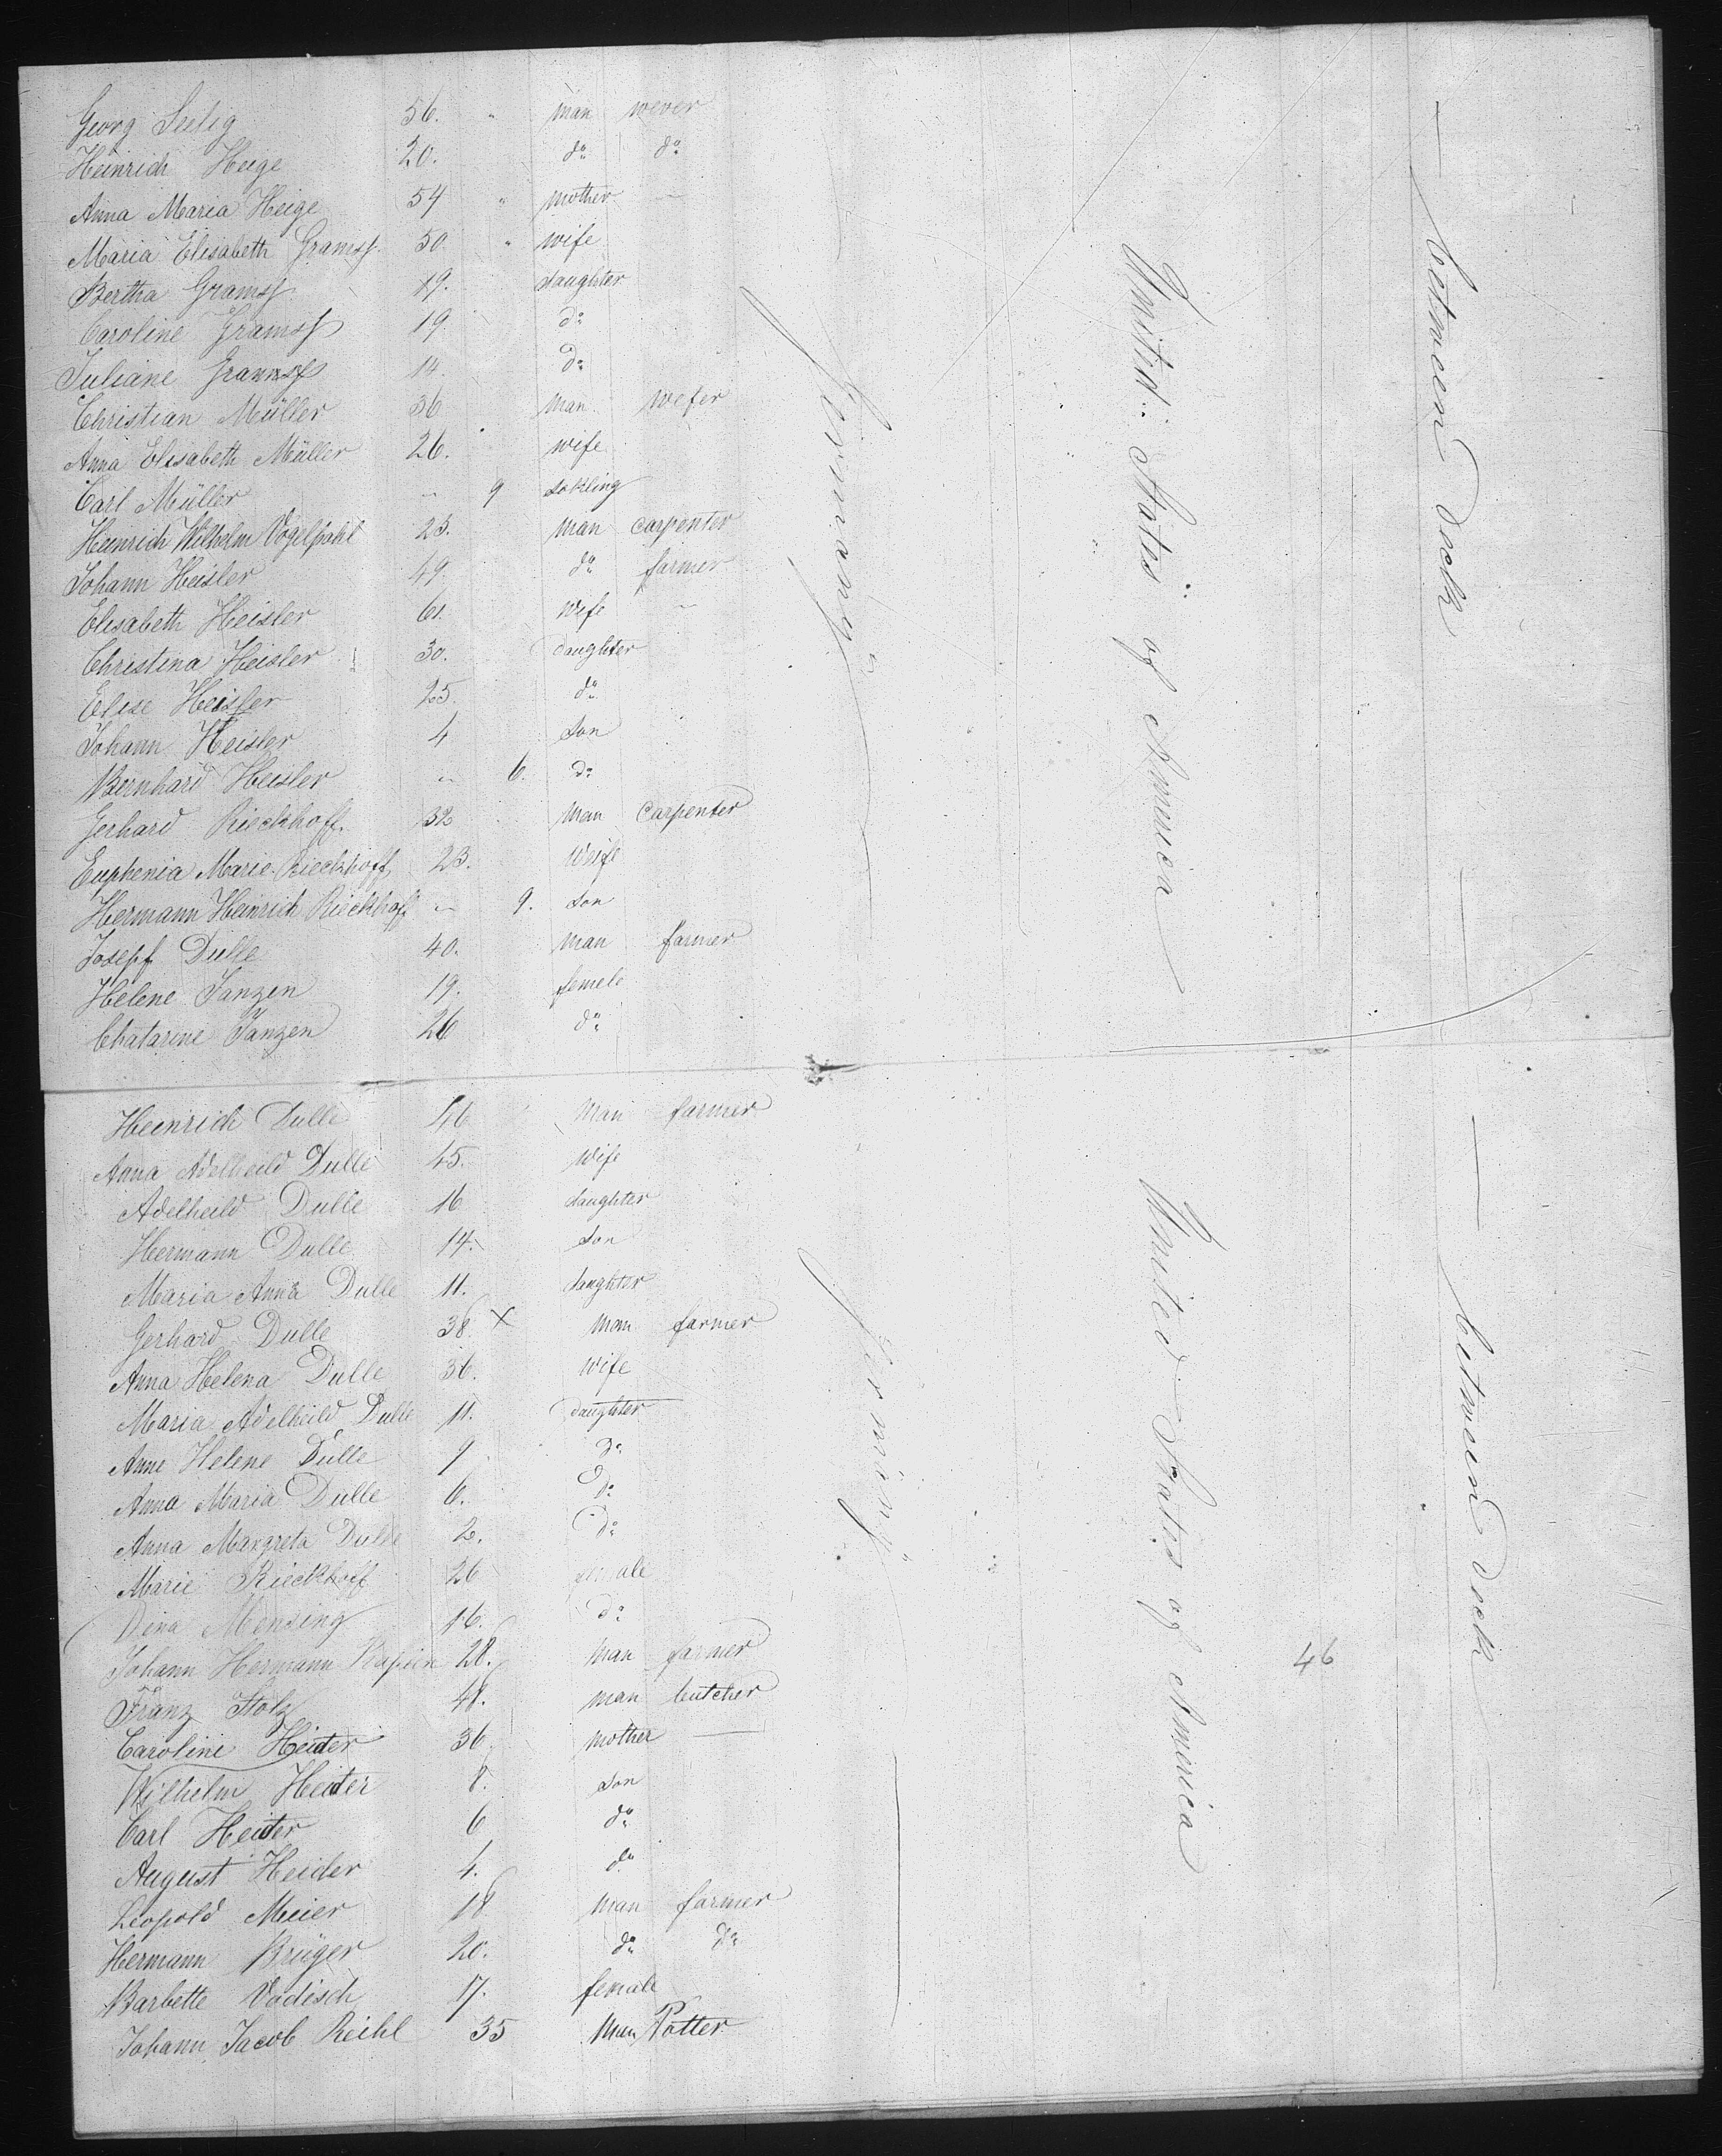 Georg Seelig 56. " man wever
Heinrich Heige 20. do do
Anna Maria Heige 54 " mother —
Maria Elisabeth Gramsf 50. " wife
Bertha Gramsf 19. daughter
Caroline Gramsf 19. do
Juliane Gramsf 14. do
Christian Müller 36 man wefer
Anna Elisabeth Müller 26. wife
Carl Müller " 9 sokling
Heinrich Wilhelm Vogelpohl 23. man carpenter
Johann Heisler 49. do farmer
Elisabeth Heisler 61. wife "
Christina Heisler 30. daughter
Elise Heisler 25. do
Johann Heisler 4 son
Bernhard Heisler " 6. do
Gerhard Rieckhoff 32 man carpenter
Euphenia Marie Rieckhoff 23. weife
Hermann Heinrich Rieckhoff " 9. son
Josepf Dulle 40. man farmer
Helene Janzen 19. femele
Chatarine Janzen 26 do
Germany
United States of America
betweend deck
Heinrich Dulle 46 man farmer
Anna Adelheild Dulle 45. wife
Adelheild Dulle 16 daughter
Hermann Dulle 14. son
Maria Anna Dulle 11. daughter
Gerhard Dulle 38. x man farmer
Anna Helena Dulle 36. wife
Maria Adelheild Dulle 11. daughter
Anne Helene Dulle 9 do
Anna Maria Dulle 6. do
Anna Margreta Dulle 2. do
Marie Rieckhoff 26
Dina Mensing 16. do
Johann Hermann 28. man farmer
Franz Stolz 48. man butcher
Caroline Heider 36. mother —
Wilhelm Heider 8. son
Carl Heider 6 do
August Heider 4. do
Leopold Meier 18 man farmer
Hermann Brüger 20. do do
Barbette Vadisch 17. female
Johann Jacob Reihl 35 man Potter
Germany
United States of America
46
betweend deck